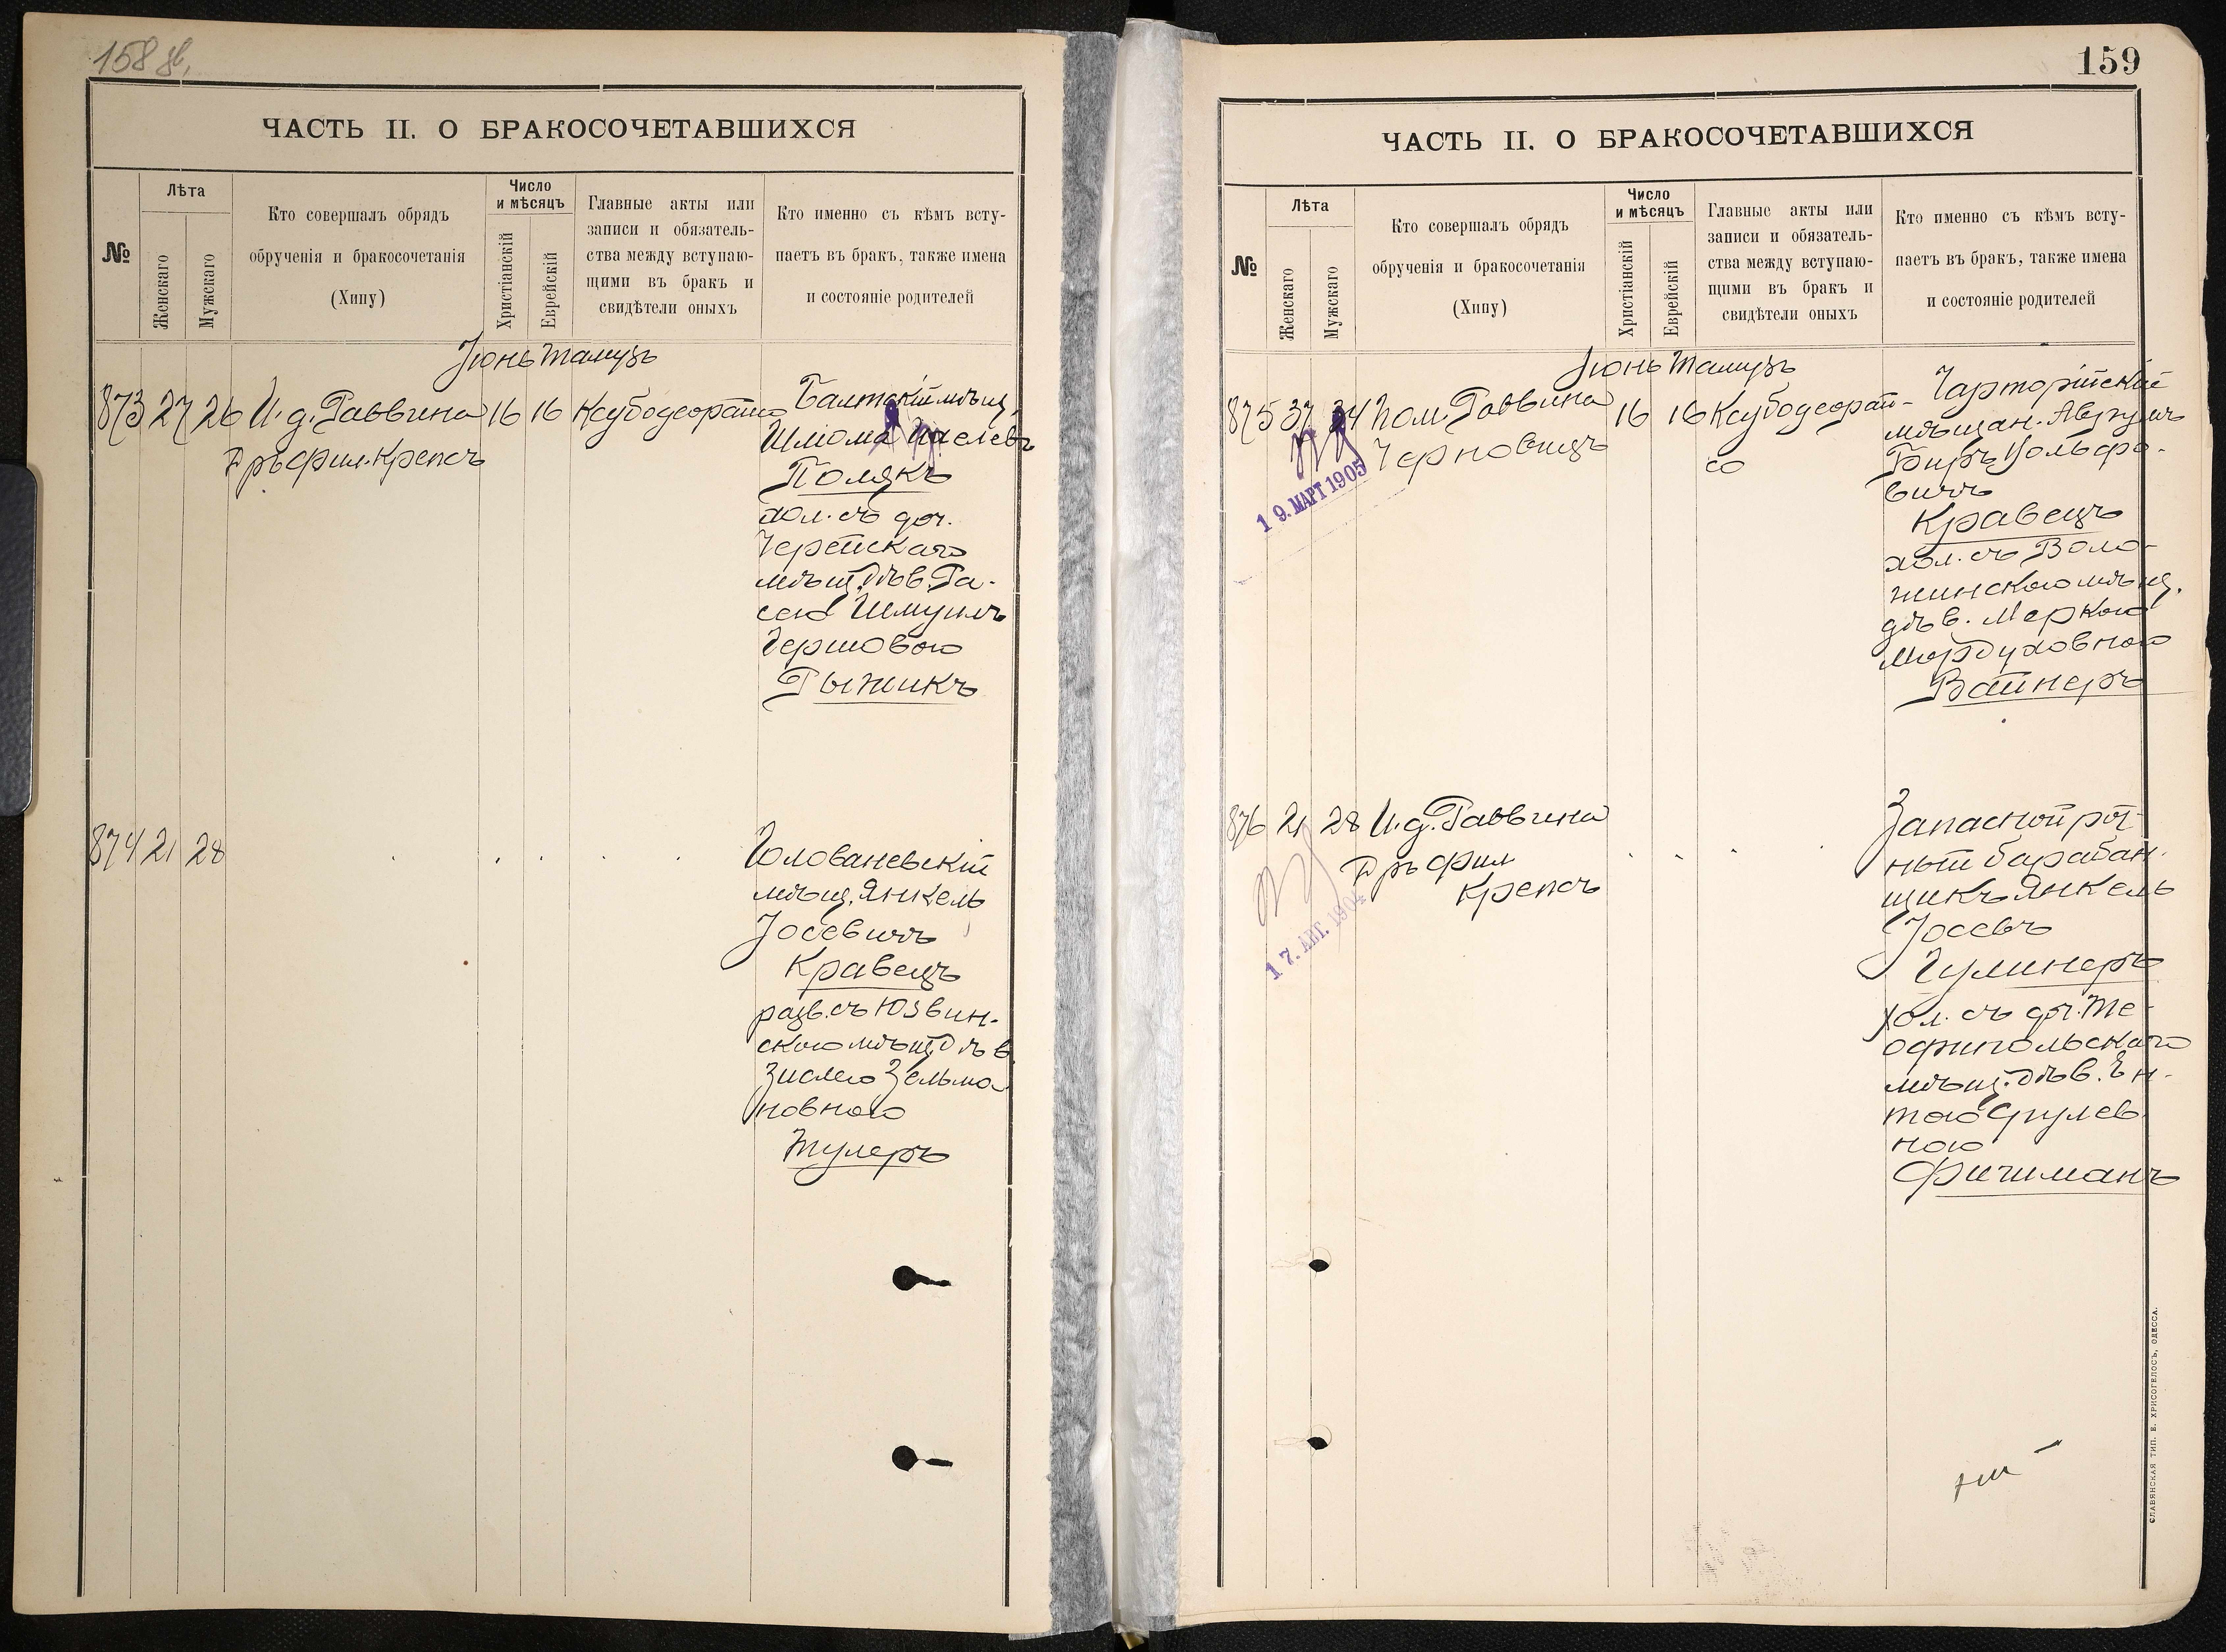 158
ЧАСТЬ II. О БРАКОСОЧЕТАВШИХСЯ
№
Лѣта
Женскаго
Мужскаго
Кто совершалъ обрядъ
обрученія и бракосочетанія
(Хипу)
Число
и мѣсяцъ
Христіанскій
Еврейскій
Главные акты или
записи и обязатель-
ства между вступаю-
щими въ бракъ и
свидѣтели оныхъ
Кто именно съ кѣмъ всту-
паетъ въ бракъ, также имена
и состояніе родителей
Іюнь Тамузъ
873 27 26 И. д. Раввина 16 16
Д-ръ фил. Крепсъ
Балтскій мѣщ.
Шлома
Полякъ
хол. съ доч.
мѣщ. дѣв. Ра-
Шмуилъ
Гершовою
Рыжикъ
874 21 28
Голованевскій
мѣщ. Янкель
Іосевичъ
Кравецъ
разв. съ Юзвин-
скою мѣщ. дѣв.
Зислею Зельма-
новною
Тулеръ
159
ЧАСТЬ II. О БРАКОСОЧЕТАВШИХСЯ
№
Лѣта
Женскаго
Мужскаго
Кто совершалъ обрядъ
обрученія и бракосочетанія
(Хипу)
Число
и мѣсяцъ
Христіанскій
Еврейскій
Главные акты или
записи и обязатель-
ства между вступаю-
щими въ бракъ и
свидѣтели оныхъ
Кто именно съ кѣмъ всту-
паетъ въ бракъ, также имена
и состояніе родителей
Іюнь Тамузъ
875 37 34 Пом. Раввина 16 16
Черновицъ
19. МАРТ 1905
Чарторійскій
мѣщан. Аврумъ
Беръ Вольфо-
вичъ
Кравецъ
хол. съ Воло-
жинскою мѣщ.
дѣв. Меркою
Мордуховною
Вайнеръ
876 21 28 И. д. Раввина
Д-ръ фил
Крепсъ
17. АВГ. 1904
Запасной рот-
ный барабан-
щикъ Янкель
Іосевъ
Гулинеръ
хол. съ доч. Те-
офипольскаго
мѣщ. дѣв. Ен-
тою Срулев
ною
Фишманъ
СЛАВЯНСКАЯ ТИП. Е. ХРИСОГЕЛОСЪ, ОДЕССА.